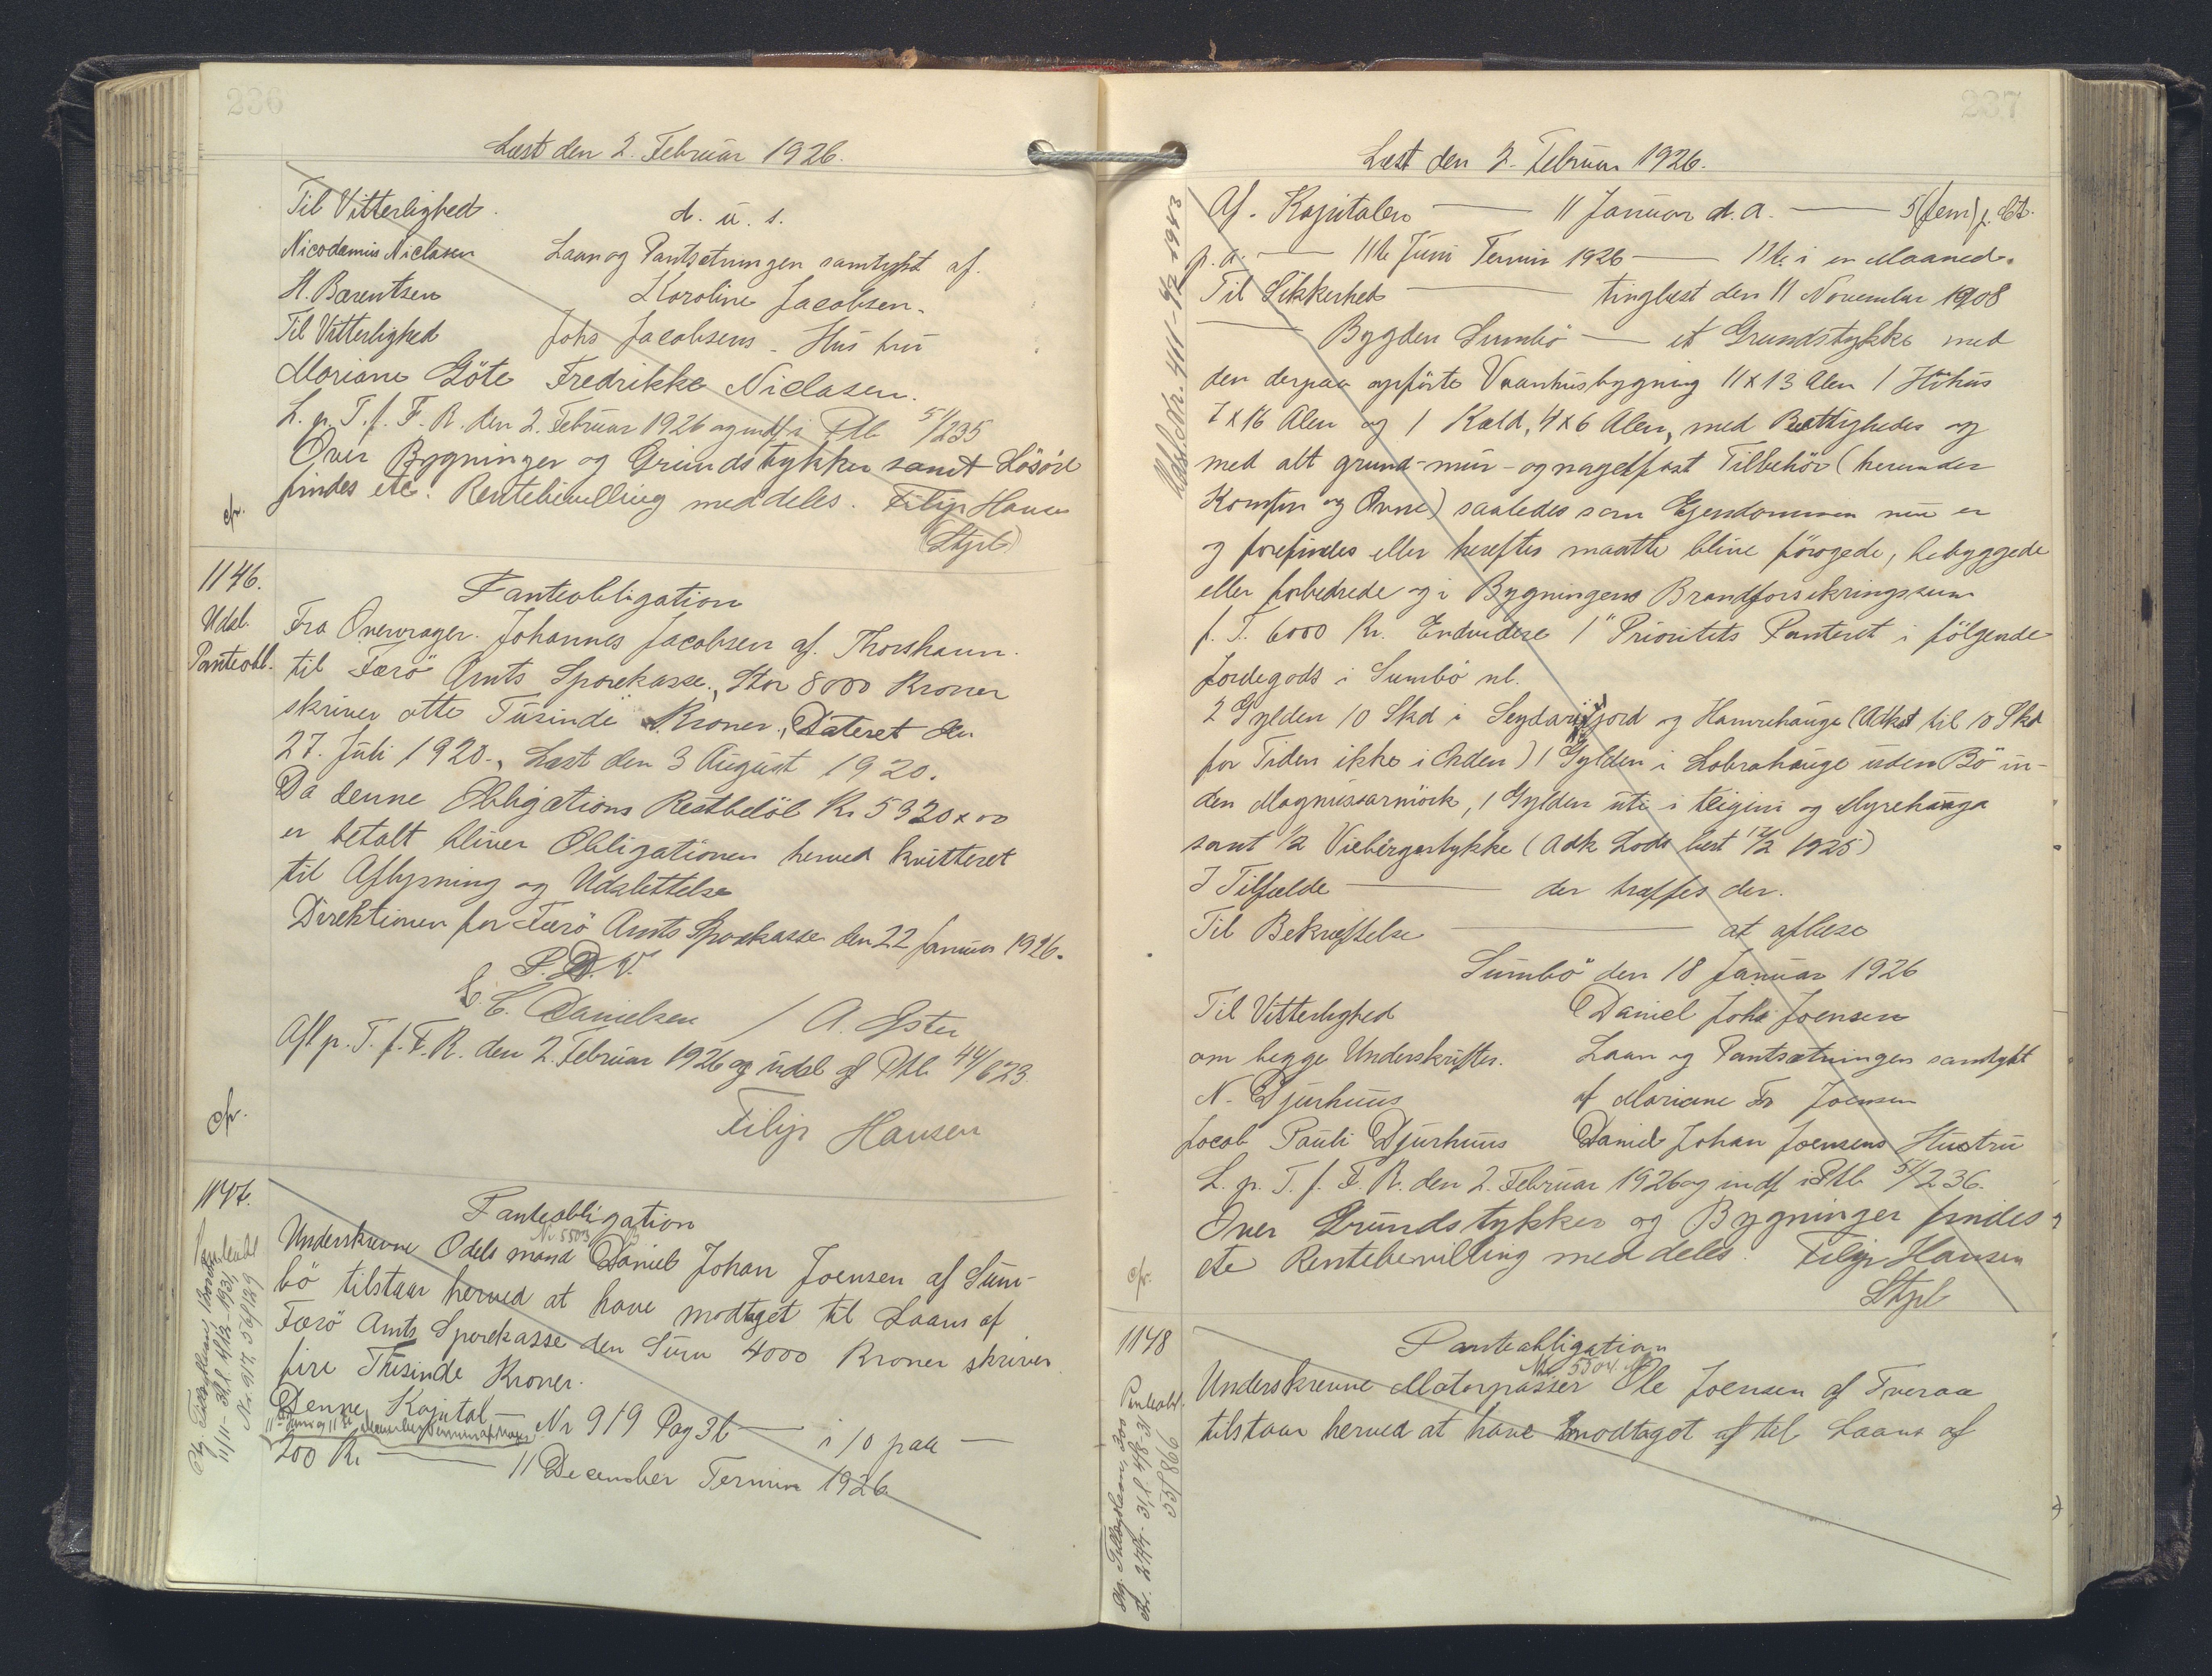 236
Læst den 2. Februar 1926.
Til Vitterlighed. d. u. s.
Nicodemus Niclasen Laan og Pantsætningen samtykt af.
H. Barentsen Karoline Jacobsen.
Til Vitterlighed Johs Jacobsens - Hustru
Mariane Göte Fredrikke Niclasen.
L. p. T. f. F. R. den 2. Februar 1926 og indf i Ptb 51/235
Over Bygninger og Grundstykker samt Lösöre
findes etc. Rentebevilling meddeles. Filip Hansen
cfr. (Stpl)
1146.
Udsl.
Panteobl.
Panteobligation
Fra Overvrager. Johannes Jacobsen af. Thorshavn.
til Færö Amts Sparekasse., Stor 8000 Kroner
skriver otte Tusinde Kroner, Dateret den
27. Juli 1920., Læst den 3 August 1920.
Da denne Obligations Restbelöb Kr 5320 x 00
er betalt bliver Obligationen herved kvitteret
til Aflysning og Udslettelse
Direktionen for Færö Amts Sparekasse den 22 Januar 1926.
P. D. V.
C. C. Danielsen / A. Ester
Afl p. T. f. F. R. den 2. Februar 1926 og udsl af Ptb 44/623.
cfr. Filip Hansen
1147.
Panteobl
Panteobligation
Nr 5503
Underskrevne Odelsmand Daniel Johan Joensen af Sum-
bö tilstaar herved at have modtaget til Laans af
Færö Amts Sparekasse den Sum 4000 Kroner skriver
fire Tusinde Kroner.
Denne Kapital — Nr 919 Pag 36 — i 10 paa —
11te Juni og 11te December Termin
200 Kr — 11 December Termin 1926
237
Læst den 2. Februar 1926.
Udsl. d. Nr. 411 - 9/2 1943
Af. Kapitalen — 11 Januar d. a. — 5 (fem) p. Ct.
p. a. — 11te Juni Termin 1926 — 11te i en Maaned.
Til Sikkerhed — tinglæst den 11 November 1908
— Bygden Sumbö — et Grundstykke med
den derpaa opförte Vaanhusbygning 11 x 13 Alen 1 Höhus
7 x 16 Alen og 1 Kæld, 4 x 6 Alen, med Rettigheder og
med alt grund- mur- og nagelfast Tilbehör (herunder
Komfur og Ovne) saaledes som Ejendommen nu er
og forefindes eller herefter maatte blive forögede, bebyggede
eller forbedrede og i Bygningens Brandforsikringssum
f. T. 6000 Kr. Endvidere 1" Prioritets Panteret i fölgende
Jordegods i Sumbö nl.
2 Gylden 10 Skd i Seydarfjord og Hamrehauge (Adkst til 10 Skd
for Tiden ikke i Orden) 1 Gylden i Lobrahauge uden Bö in-
den Magnussarmörk, 1 Gylden uti i teigini og Myrehauga
samt 1/2 Viebergastykke (Adk Lods læst 12/2 1925)
I Tilfælde — der træffes der.
Til Bekræftelse — at aflæse
Sumbö den 18 Januar 1926
Til Vitterlighed Daniel Johs Joensen
om begge Underskrifter. Laan og Pantsætningen samtykt
N. Djurhuus af Mariane Fr Joensen
Jacob Pauli Djurhuus Daniel Johan Joensens Hustru
L. p. T. f. F. R. den 2. Februar 1926 og indf i Ptb 51/236.
Over Grundstykker og Bygninger findes
cfr. etc Rentebevilling meddeles. Filip Hansen
Stpl
1148
Panteobl.
Panteobligation
Nr 5504
Underskrevne Motorpasser Ole Joensen af Tveraa
tilstaar herved at have modtaget af til Laans af
55/866